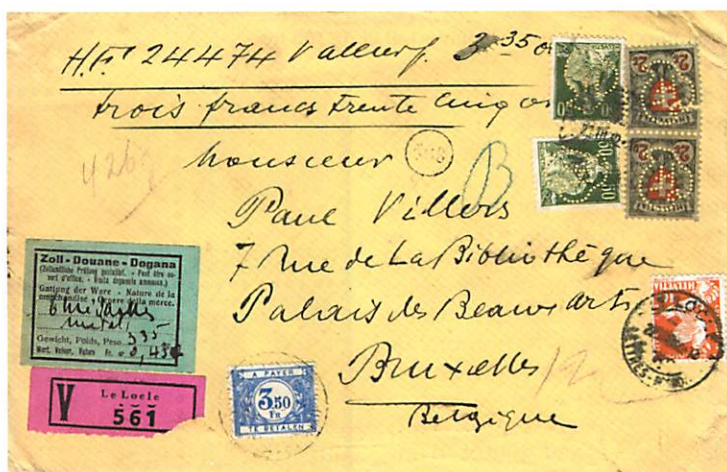 H.F. 24474 Valeur f. 3.35 or
trois francs trente cinq or
Monsieur
Paul Villers
7 rue de La Bibliothèque
Palais des Beaux Arts
Bruxelles
Belgique
B
Zoll - Douane - Dogana
(Zollamtliche Prüfung gestattet. - Peut être ou-
vert d'office. - Visita doganale ammessa.)
Gattung der Ware - Nature de la
marchandise - Genere della merce.
Gewicht, Poids, Peso
Wert, Valeur, Valore Fr.
V
Le Locle
561
A PAYER
3.50
Fr
TE BETALEN
HELVETIA